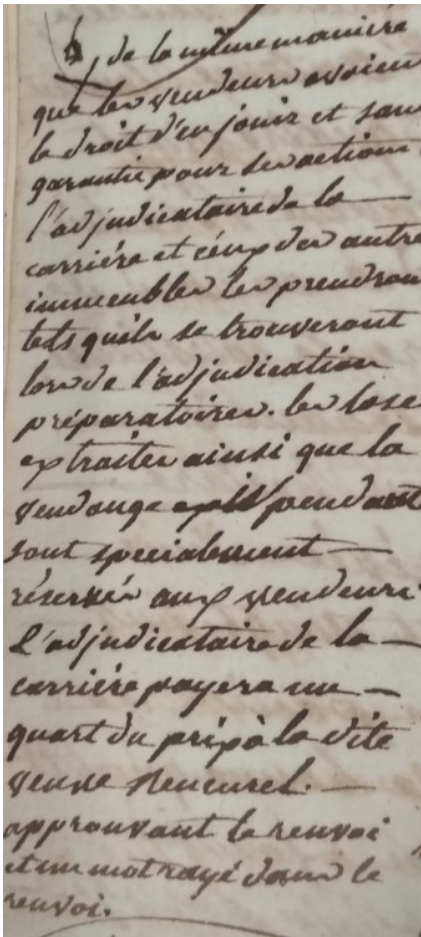 de la même maniere
que les vendeurs avoient
le droit d'en jouir et sans
garantie pour ses actions
l'adjudicataire de la
carriére et ceux des autres
immeubles les prendront
tels quils se trouveront
lors de l'adjudication
préparatoires. les lose
extraites ainsi que la
vendange pendant
sont specialement
réservés aux vendeurs
L'adjudicataire de la
carriére payera un
quart du prix à la dite
veuve Reneurel.
approuvant le renvoi
et un mot rayé dans le
renvoi.